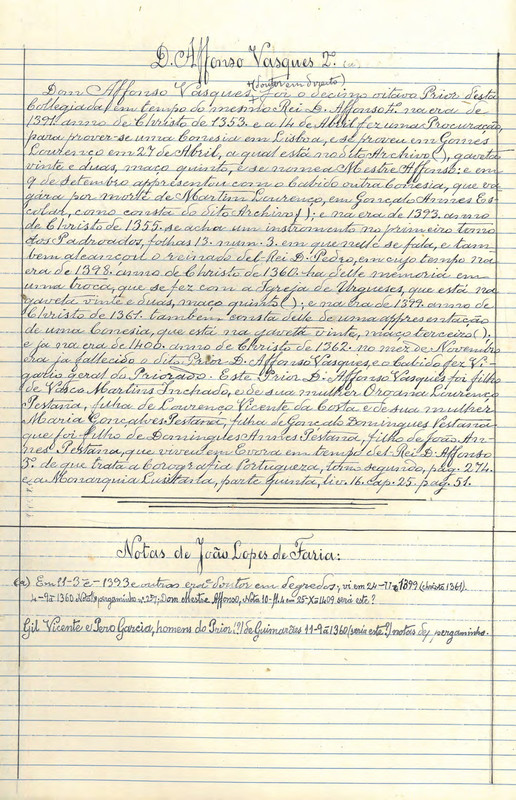 D. Affonso Vasques 2. (a)
(doutor em direito)
Dom Affonso Vasques, foi o decimo oitavo Prior d'esta
Collegiada em tempo do mesmo Rei D. Affonso 4. na era de
1391 anno de Christo de 1353. e a 14 de Abril fez uma Procuração
para prover-se uma Conesia em Lisboa, e se proveu em Gomes
Lourenco em 27 de Abril, a qual está no dito Archivo ( ), gaveta
vinte e duas, maço quinto, e se nomea Mestre Affonso: e em
9 de Setembro appresentou com o Cabido outra Conesia, que va-
gára por morte de Martim Lourenço, em Gonçalo Annes Es-
colar, como consta do dito Archivo ( ); e na era de 1393. anno
de Christo de 1355. se acha um instromento no primeiro tomo
dos Padroados, folhas 13. num. 3. em que nelle se fala, e tam-
bem alcançou o reinado del-Rei D. Pedro, em cujo tempo na
era de 1398. anno de Christo de 1360. ha delle memoria em
uma troca, que se fez com a Igreja de Urgueses, que está na
gaveta vinte e duas, maço quinto ( ); e na era de 1399. anno de
Christo de 1361. tambem consta delle de uma appresentação
de uma Conesia, que está na gaveta vinte, maço terceiro ( );
e ja na era de 1400. anno de Christo de 1362. no mez de Novembro
era ja fallecido o dito Prior D. Affonso Vasques e o Cabido fez Vi-
gario geral do Priorado. Este Prior D. Affonso Vasques foi filho
de Vasco Martins Inchado, e de sua mulher Oroana Lourenço
Pestana, filha de Lourenço Vicente da Costa e de sua mulher
Maria Goncalves Pestana, filha de Gonçalo Domingues Pestana
que foi filho de Domingues Annes Pestana, filho de João An-
nes Pestana, que viveu em Evora em tempo del Rei D. Affonso
3. de que trata a Corografia Portugueza, tomo segundo, pag. 274.
e a Monarquia Lusitana, parte quinta, liv. 16. cap. 25. pag. 51.
Notas de João Lopes de Faria:
(a) Em 11-3º- 1393 e outras era doutor em Segredos; vi em 24 1899 (christo 1361).
4-9º 1360 pergaminho nº 257; Dom Mestre Affonso, Nota 10 fl. 4 em 25-X-1409 será este?
Gil Vicente e Pero Garcia, homens do Prior (?) de Guimarães 11-9º 1360 (seria este?) notas de pergaminho.